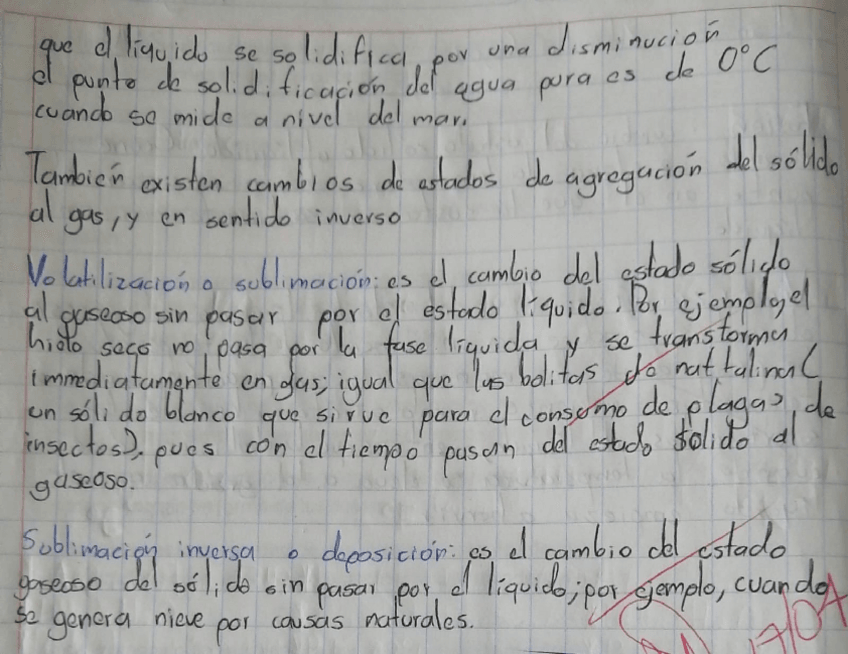 que el líquido se solidifica, por una disminución
el punto de solidificación del agua pura es de 0°C
cuando se mide a nivel del mar.
También existen cambios de estados de agregación del sólido
al gas, y en sentido inverso
Volatilización o sublimación: es el cambio del estado sólido
al gaseoso sin pasar por el estado líquido. Por ejemplo, el
hielo seco no pasa por la fase líquida y se transforma
immediatamente en gas; igual que las bolitas de naftalina (
un sólido blanco que sirve para el consumo de plagas, de
insectos), pues con el tiempo pasan del estado sólido al
gaseoso.
Sublimación inversa o deposición: es el cambio del estado
gaseoso del sólido sin pasar por el líquido; por ejemplo, cuando
se genera nieve por causas naturales.